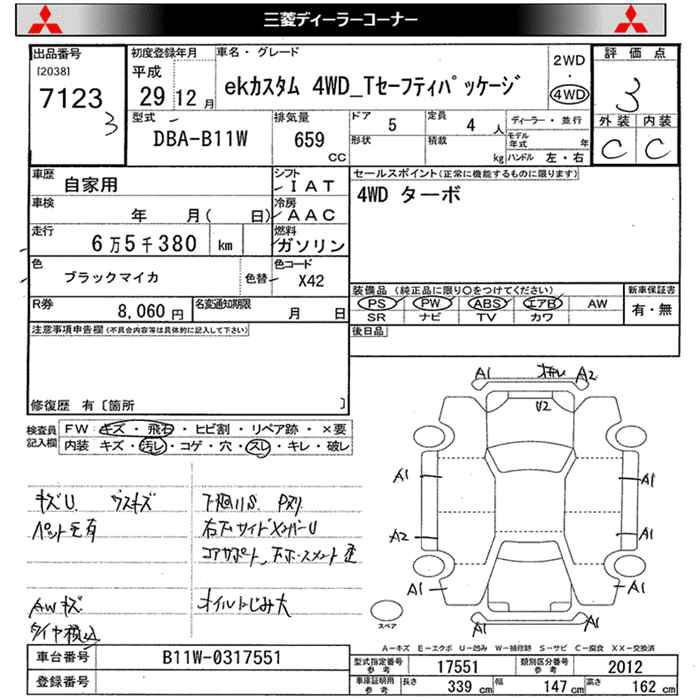 三菱ディーラーコーナー
出品番号
[2038]
7123
3
初度登録年月
平成
29 12月
車名・グレード
ekカスタム 4WD_Tセーフティパッケージ
2WD
・
4WD
評価点
3
外装 内装
C C
型式
DBA-B11W
排気量
659
CC
ドア 5
定員 4 人
形状
積載 kg
ディーラー・並行
モデル年式 年
ハンドル 左・右
車歴
自家用
シフト
IAT
車検
年 月( 日)
冷房
AAC
走行
6万5千380 km
燃料
ガソリン
色
ブラックマイカ
色替
色コード
X42
R券
8,060円
名変通知期限
月 日
セールスポイント(正常に機能するものに限ります)
4WD ターボ
装備品(純正品に限り○をつけてください)
PS PW ABS エアB AW
SR ナビ TV カワ
新車保証書
有・無
後日品
注意事項申告欄(不具合内容等は具体的に記入して下さい)
修復歴 有〔箇所 〕
検査員記入欄
FW キズ・飛石・ヒビ割・リペア跡・×要
内装 キズ・汚レ・コゲ・穴・スレ・キレ・破レ
キズU ウスキズ
ペット毛有
AWキズ
下廻りS Pズリ
右下サイドメンバーU
コアサポート
オイルにじみ大
A1 A2
U2
A1 A1
A2 A1
A1 A1
A1
スペア
A-キズ E-エクボ U-凹み W-補修跡 S-サビ C-腐食 XX-交換済
車台番号
B11W-0317551
登録番号
型式指定番号 参考
17551
類別区分番号 参考
2012
車庫証明用 参考
長さ 339 cm 幅 147 cm 高さ 162 cm